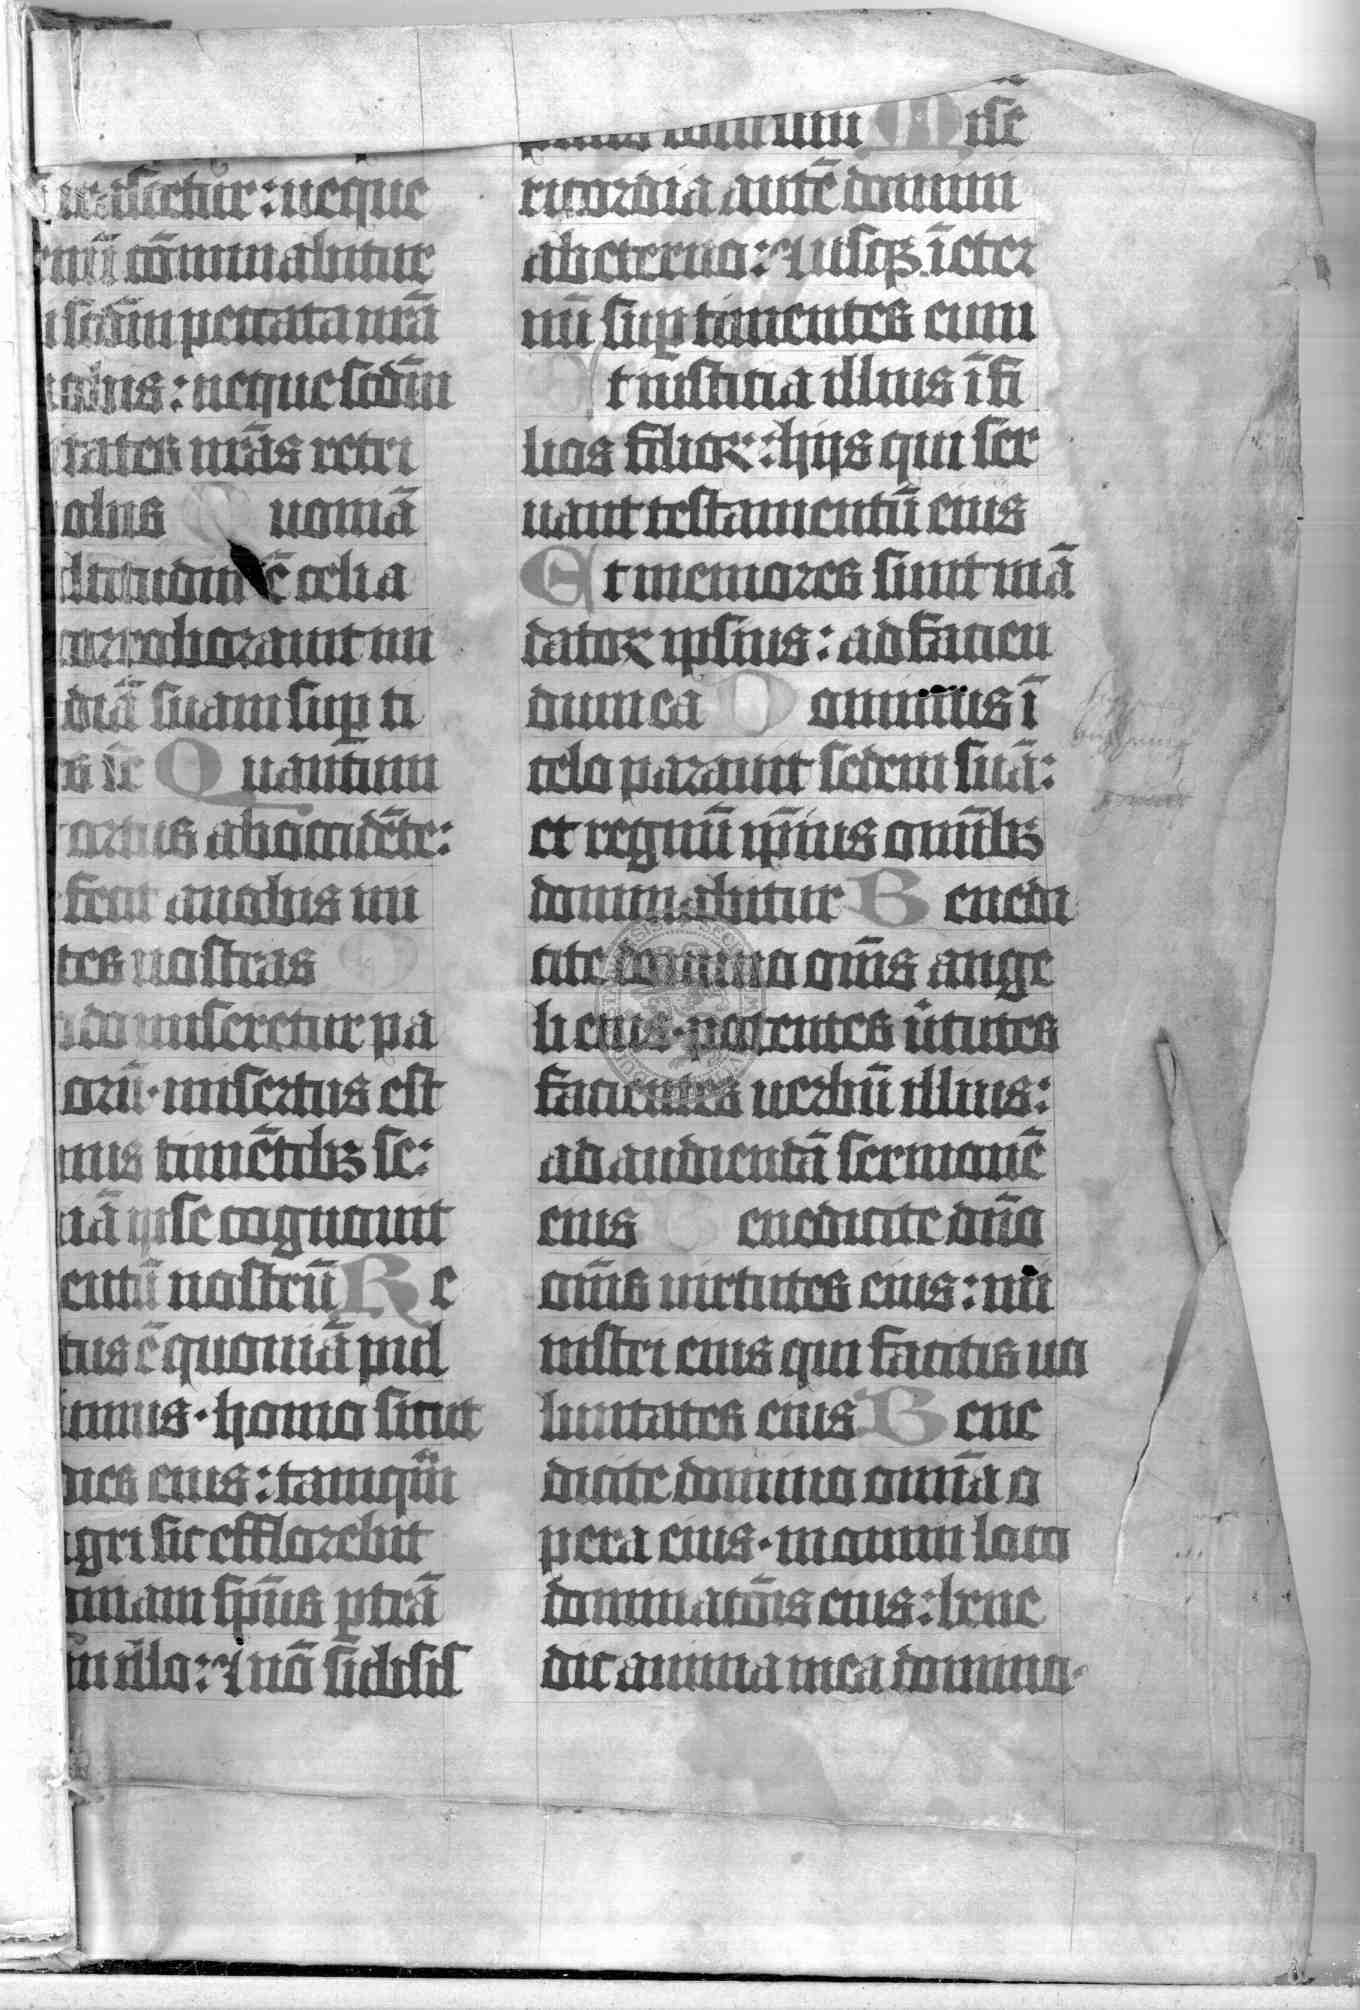 irascetur: neque
nū cōminabitur
scdm peccata nrā
nobis: neque scdm
tates nrās retri
obis Quoniā
ltitudinē celi a
corroborauit mi
diā suam sup ti
es se Quantum
ortus ab occidēte:
fecit a nobis ini
tes nostras Q
do miseretur pa
orū · misertus est
nus timētibꝫ se:
iā ipse cognouit
entū nostrū Re
tus ē quoniā pul
umus · homo sicut
dies eius: tamqm̄
agri sic efflorebit
oniam sp̄us ptrā
in illo: ⁊ nō s̄bsis
Mise
ricordia autē domini
ab eterno: ⁊ usqꝫ ī eter
nū sup timentes eum
Et iusticia illius ī fi
lios filioꝝ: hijs qui ser
uant testamentū eius
Et memores sunt mā
datoꝝ ipsius: ad facien
dum ea Dominus ī
celo parauit sedem suā:
et regnū ip̄ius omībꝫ
dominabitur Benedi
cite domino om̄s ange
li eius · potentes ūtutes
facientes uerbū illius:
ad audiendā sermonē
eius Benedicite dn̄o
om̄s uirtutes eius: mi
nistri eius qui facitis uo
luntates eius Bene
dicite domino omīa o
pera eius · in omni loco
dominatōis eius: bene
dic anima mea domino ·